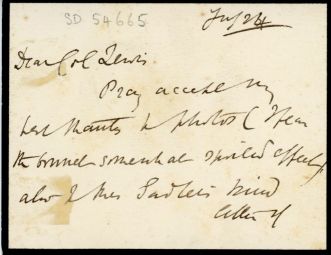 SD 54665
July 24
Dear Col Lewis
Pray accept my
best thanks for photos (I fear
the bonnet somewhat spoiled effect)
also for Mrs Sadleir's kind